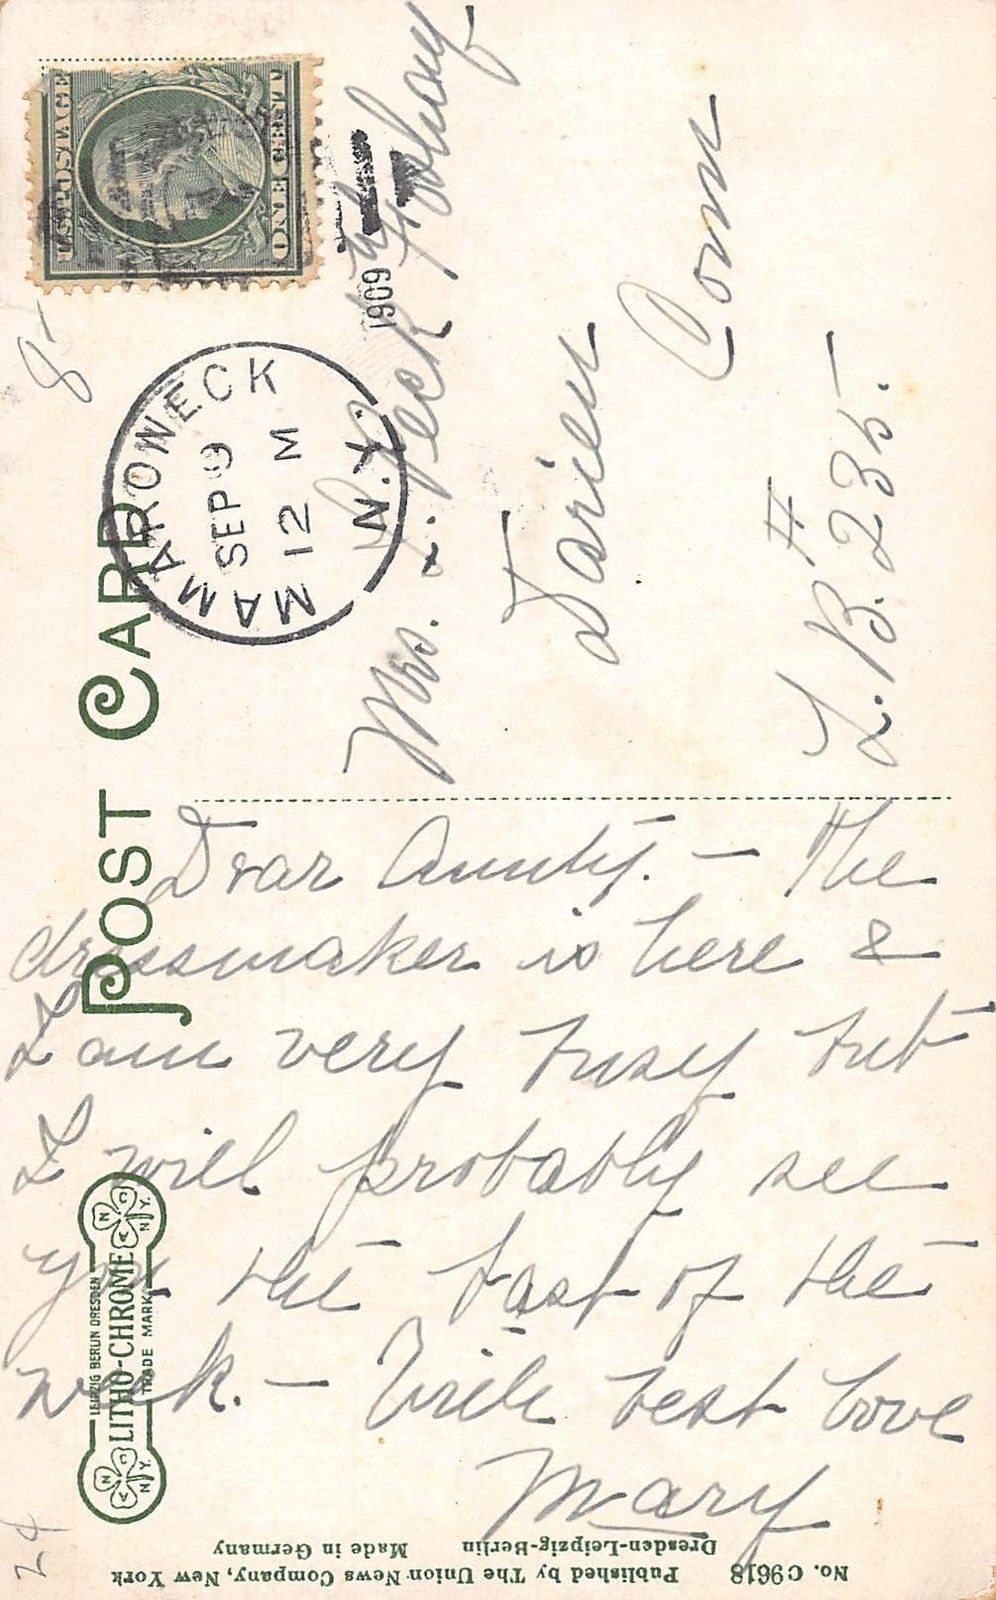 U.S. POSTAGE
ONE CENT
MAMARONECK
SEP 9
12 M
N.Y.
1909
POST CARD
8-
Mrs.
Peck
Darien
Conn
L. B. # 235.
Dear Aunty. — The
dressmaker is here &
I am very busy but
I will probably see
you the last of the
week. — With best love
Mary
LEIPZIG BERLIN DRESDEN
LITHO-CHROME
TRADE MARK
A N C N.Y.
A N C N.Y.
24
No. C9618 Published by The Union News Company, New York
Dresden-Leipzig-Berlin Made in Germany